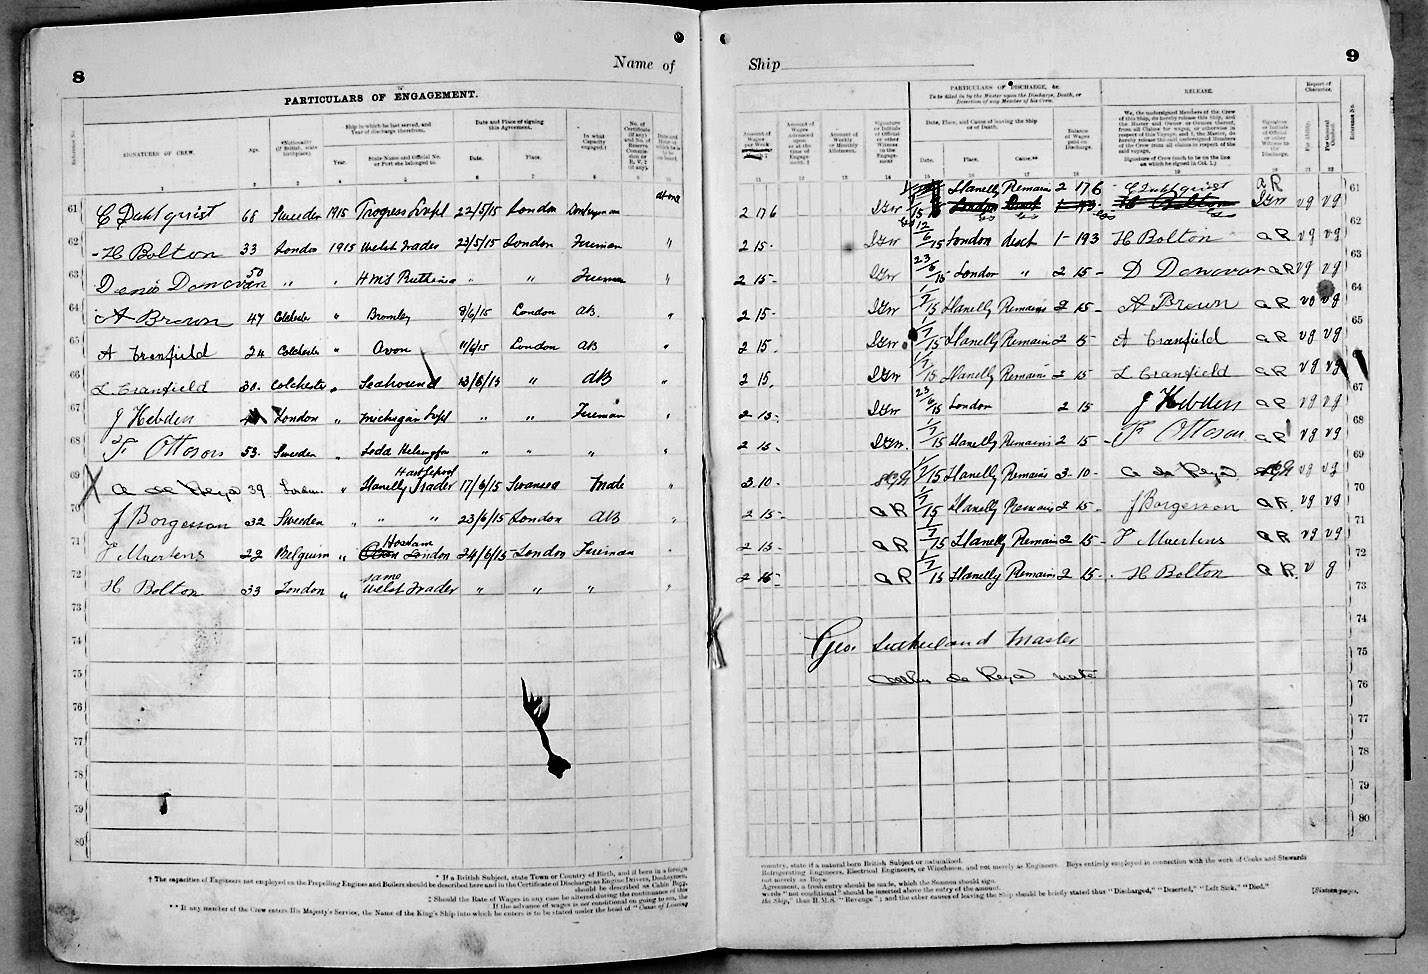 8
Name of
PARTICULARS OF ENGAGEMENT.
Reference No.
SIGNATURES OF CREW.
Age.
*Nationality (if British, state birthplace).
Ship in which he last served, and Year of discharge therefrom.
Year.
State Name and Official No. or Port she belonged to.
Date and Place of signing this Agreement.
Date.
Place.
In what Capacity engaged.†
1 2 3 4 5 6 7 8 9
61 C Dahlquist 65 Sweden 1915 Progress Lvpl 22/5/15 London Donkeyman at once
62 H Bolton 33 London 1915 Welsh Trader 23/5/15 London Fireman "
63 Denis Donovan 50 " " HMS Ruthenia " " Fireman "
64 A Brown 47 Colchester " Bromley 8/6/15 London AB. "
65 A Cranfield 24 Colchester " Avon 11/6/15 London AB "
66 L. Cranfield 30. Colchester " Seahound 13/6/15 " AB "
67 J Hebden London " Michigan Lvpl " " Fireman "
68 F Ottoson 53. Sweden " " " " "
Hartlepool
69 A de Reya 39 London " Llanelly Trader 17/6/15 Swansea Mate "
70 J Borgesson 32 Sweden " " " 23/6/15 London AB "
71 F Maertens 22 Belguim " London 24/6/15 London Fireman "
same
72 H Bolton 33 London " Welsh Trader " " " "
73
74
75
76
77
78
79
80
* If a British Subject, state Town or Country of Birth, and if born in a foreign
† The capacities of Engineers not employed on the Propelling Engines and Boilers should be described here and in the Certificate of Discharge as Engine Drivers, Donkeymen,
should be described as Cabin Boys.
‡ Should the Rate of Wages in any case be altered during the continuance of this
If the advance of wages is not conditional on going to sea, the
** If any member of the Crew enters His Majesty's Service, the Name of the King's Ship into which he enters is to be stated under the head of "Cause of Leaving
Ship
9
PARTICULARS OF DISCHARGE, &c.
To be filled in by the Master upon the Discharge, Death, or Desertion of any Member of his Crew.
Date, Place, and Cause of leaving the Ship or of Death.
Date. Place. Cause.**
Balance of Wages paid on Discharge.
RELEASE.
We, the undersigned Members of the Crew of this Ship, do hereby release this Ship, and the Master and Owner or Owners thereof, from all Claims for wages, or otherwise in respect of this Voyage; and I, the Master, do hereby release the undersigned Members of the Crew from all claims in respect of the said voyage.
Signature of Crew (each to be on the line on which he signed in Col. 1.)
Signature or Initials of Official or other Witness to the Discharge.
Report of Character.
For Ability.
For General Conduct.
Reference No.
Amount of Wages per Week
Amount of Wages Advanced upon or at the time of Engagement.
Amount of Weekly or Monthly Allotment.
Signature or Initials of Official or other Witness to the Engagement
11 12 13 14 15 16 17 18 19 20 21 22
2 17 6 Llanelly Remains 2 17 6 C Dahlquist A R vg vg 61
2 15 - 12/6/15 London disch 1-19 3 H Bolton A R vg vg 62
2 15 - 23/6/15 London " 2 15 - D Donovan A R vg vg 63
2 15 - 1/7/15 Llanelly Remains 2 15 - A Brown A R vg vg 64
2 15. 1/7/15 Llanelly Remains 2 15 A Cranfield A R vg vg 65
2 15, 1/7/15 Llanelly Remains 2 15 L Cranfield A R vg vg 66
2 15 - 23/6/15 London 2 15 J Hebden A R vg vg 67
2 15 - 1/7/15 Llanelly Remains 2 15 - F Ottoson A R vg vg 68
3.10 - 1/7/15 Llanelly Remains 3-10 - A de Reya vg vg 69
2 15 - A R 1/7/15 Llanelly Remains 2 15 - J Borgesson A R. vg vg 70
2 15 - A R 1/7/15 Llanelly Remains 2 15 - F Maertens A R vg vg 71
2 15 - A R 1/7/15 Llanelly Remains 2 15 - H Bolton A R. v g 72
73
74
Geo. Sutherland Master 75
Arthur de Reya mate 76
77
78
79
80
country, state if a natural born British Subject or naturalised.
Refrigerating Engineers, Electrical Engineers, or Winchmen, and not merely as Engineers. Boys entirely employed in connection with the work of Cooks and Stewards
not merely as Boys.
Agreement, a fresh entry should be made, which the Seaman should sign.
words "not conditional" should be inserted above the entry of the amount.
the Ship," thus H.M.S. "Revenge"; and the other causes of leaving the Ship should be briefly stated thus "Discharged," "Deserted," "Left Sick," "Died."
[Sixteen pages.